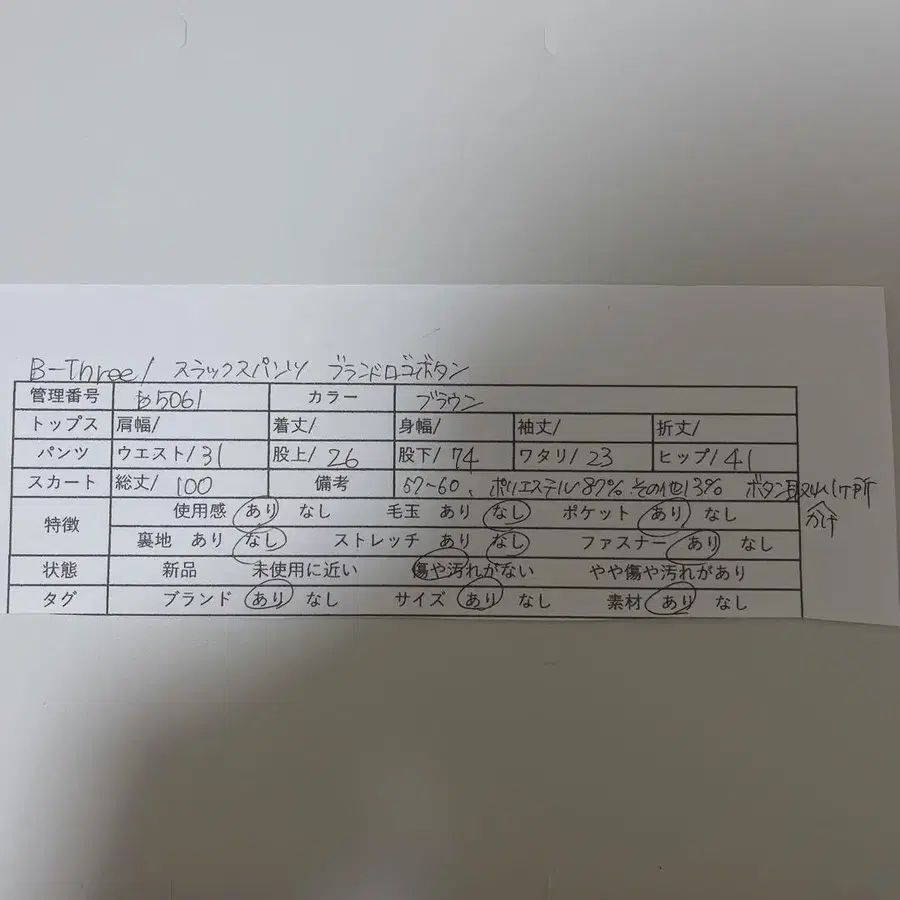 B-Three/ スラックスパンツ ブランドロゴボタン
管理番号 b5061 カラー ブラウン
トップス 肩幅/ 着丈/ 身幅/ 袖丈/ 折丈/
パンツ ウエスト/31 股上/26 股下/74 ワタリ/23 ヒップ/41
スカート 総丈/100 備考 67~60、ポリエステル87%その他13% ボタン 1ヶ所
かけ
特徴 使用感 あり なし 毛玉 あり なし ポケット あり なし
裏地 あり なし ストレッチ あり なし ファスナー あり なし
状態 新品 未使用に近い 傷や汚れがない やや傷や汚れがあり
タグ ブランド あり なし サイズ あり なし 素材 あり なし